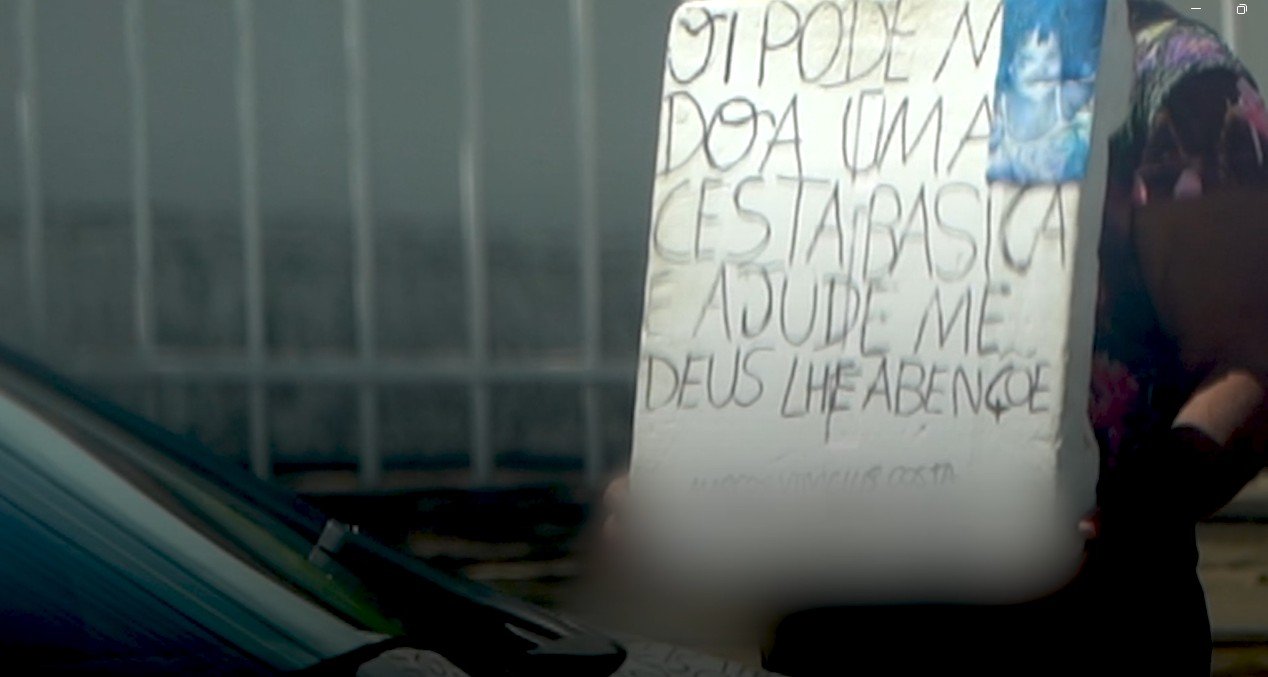 OI PODE M
DOA UMA
CESTA BASICA
E AJUDE ME
DEUS LHE ABENÇOE
COSTA